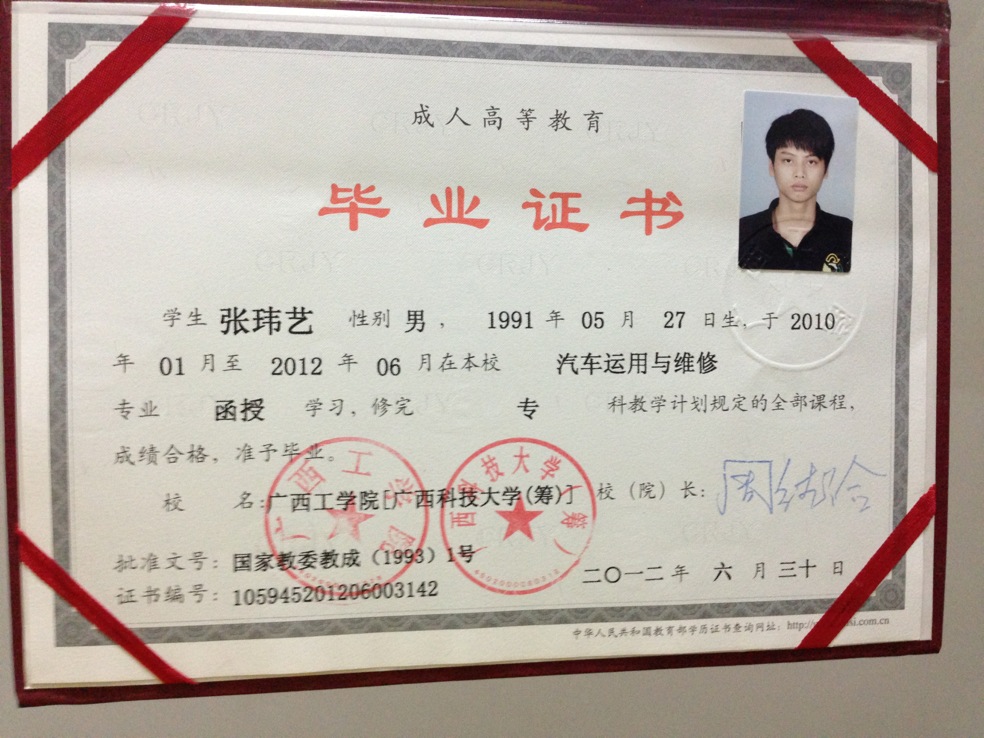 成人高等教育
毕业证书
学生 张玮艺 性别 男， 1991 年 05 月 27 日生，于 2010
年 01 月至 2012 年 06 月在本校 汽车运用与维修
专业 函授 学习，修完 专 科教学计划规定的全部课程，
成绩合格，准予毕业。
校 名：广西工学院[广西科技大学(筹)] 校（院）长：
批准文号：国家教委教成（1993）1号
证书编号：105945201206003142
二〇一二年 六 月 三十 日
中华人民共和国教育部学历证书查询网址：http://
广西工学院